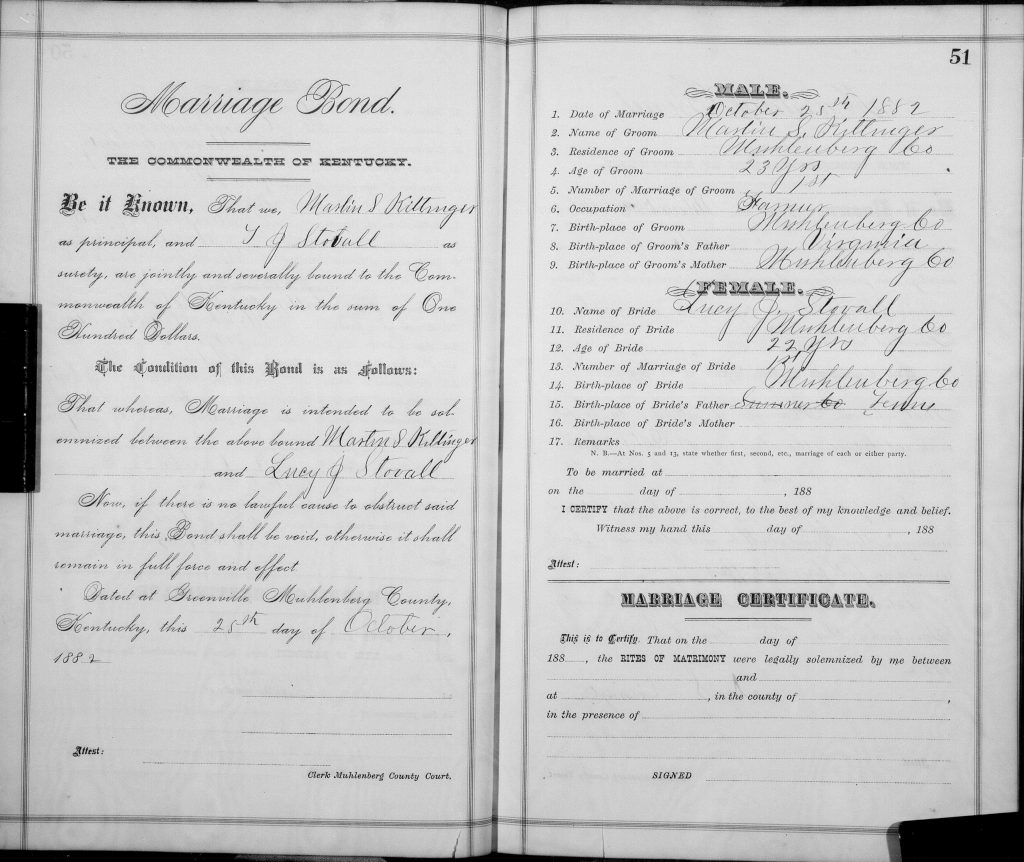 Marriage Bond.
THE COMMONWEALTH OF KENTUCKY.
Be it Known, That we, Martin S Killinger
as principal, and T J Stovall as
surety, are jointly and severally bound to the Com-
monwealth of Kentucky in the sum of One
Hundred Dollars.
The Condition of this Bond is as Follows:
That whereas, Marriage is intended to be sol-
emnized between the above bound Martin S Killinger
and Lucy J Stovall
Now, if there is no lawful cause to obstruct said
marriage, this Bond shall be void, otherwise it shall
remain in full force and effect
Dated at Greenville Muhlenberg County,
Kentucky, this 25th day of October,
1882
Attest:
Clerk Muhlenberg County Court.
51
MALE.
1. Date of Marriage October 25th 1882
2. Name of Groom Martin S. Killinger
3. Residence of Groom Muhlenberg Co
4. Age of Groom 23 Yrs
5. Number of Marriage of Groom 1st
6. Occupation Farmer
7. Birth-place of Groom Muhlenberg Co
8. Birth-place of Groom's Father Virginia
9. Birth-place of Groom's Mother Muhlenberg Co
FEMALE.
10. Name of Bride Lucy J. Stovall
11. Residence of Bride Muhlenberg Co
12. Age of Bride 22 Yrs
13. Number of Marriage of Bride 1st
14. Birth-place of Bride Muhlenberg Co
15. Birth-place of Bride's Father Sumner Co Tenn
16. Birth-place of Bride's Mother
17. Remarks
N. B.—At Nos. 5 and 13, state whether first, second, etc., marriage of each or either party.
To be married at
on the day of , 188
I CERTIFY that the above is correct, to the best of my knowledge and belief.
Witness my hand this day of , 188
Attest:
MARRIAGE CERTIFICATE.
This is to Certify, That on the day of
188 , the RITES OF MATRIMONY were legally solemnized by me between
and
at , in the county of ,
in the presence of
SIGNED